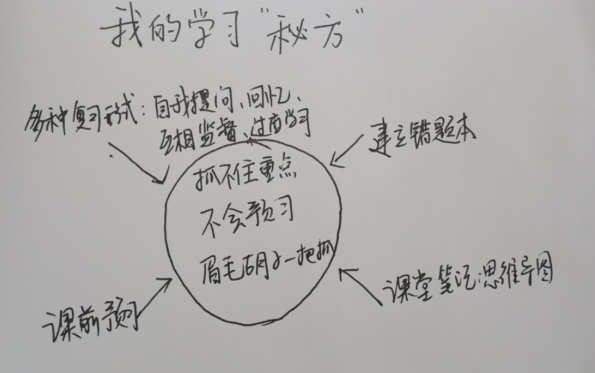 我的学习“秘方”
多种复习形式：自我提问、回忆、
互相监督、过度学习
建立错题本
抓不住重点
不会预习
眉毛胡子一把抓
课前预习
课堂笔记思维导图